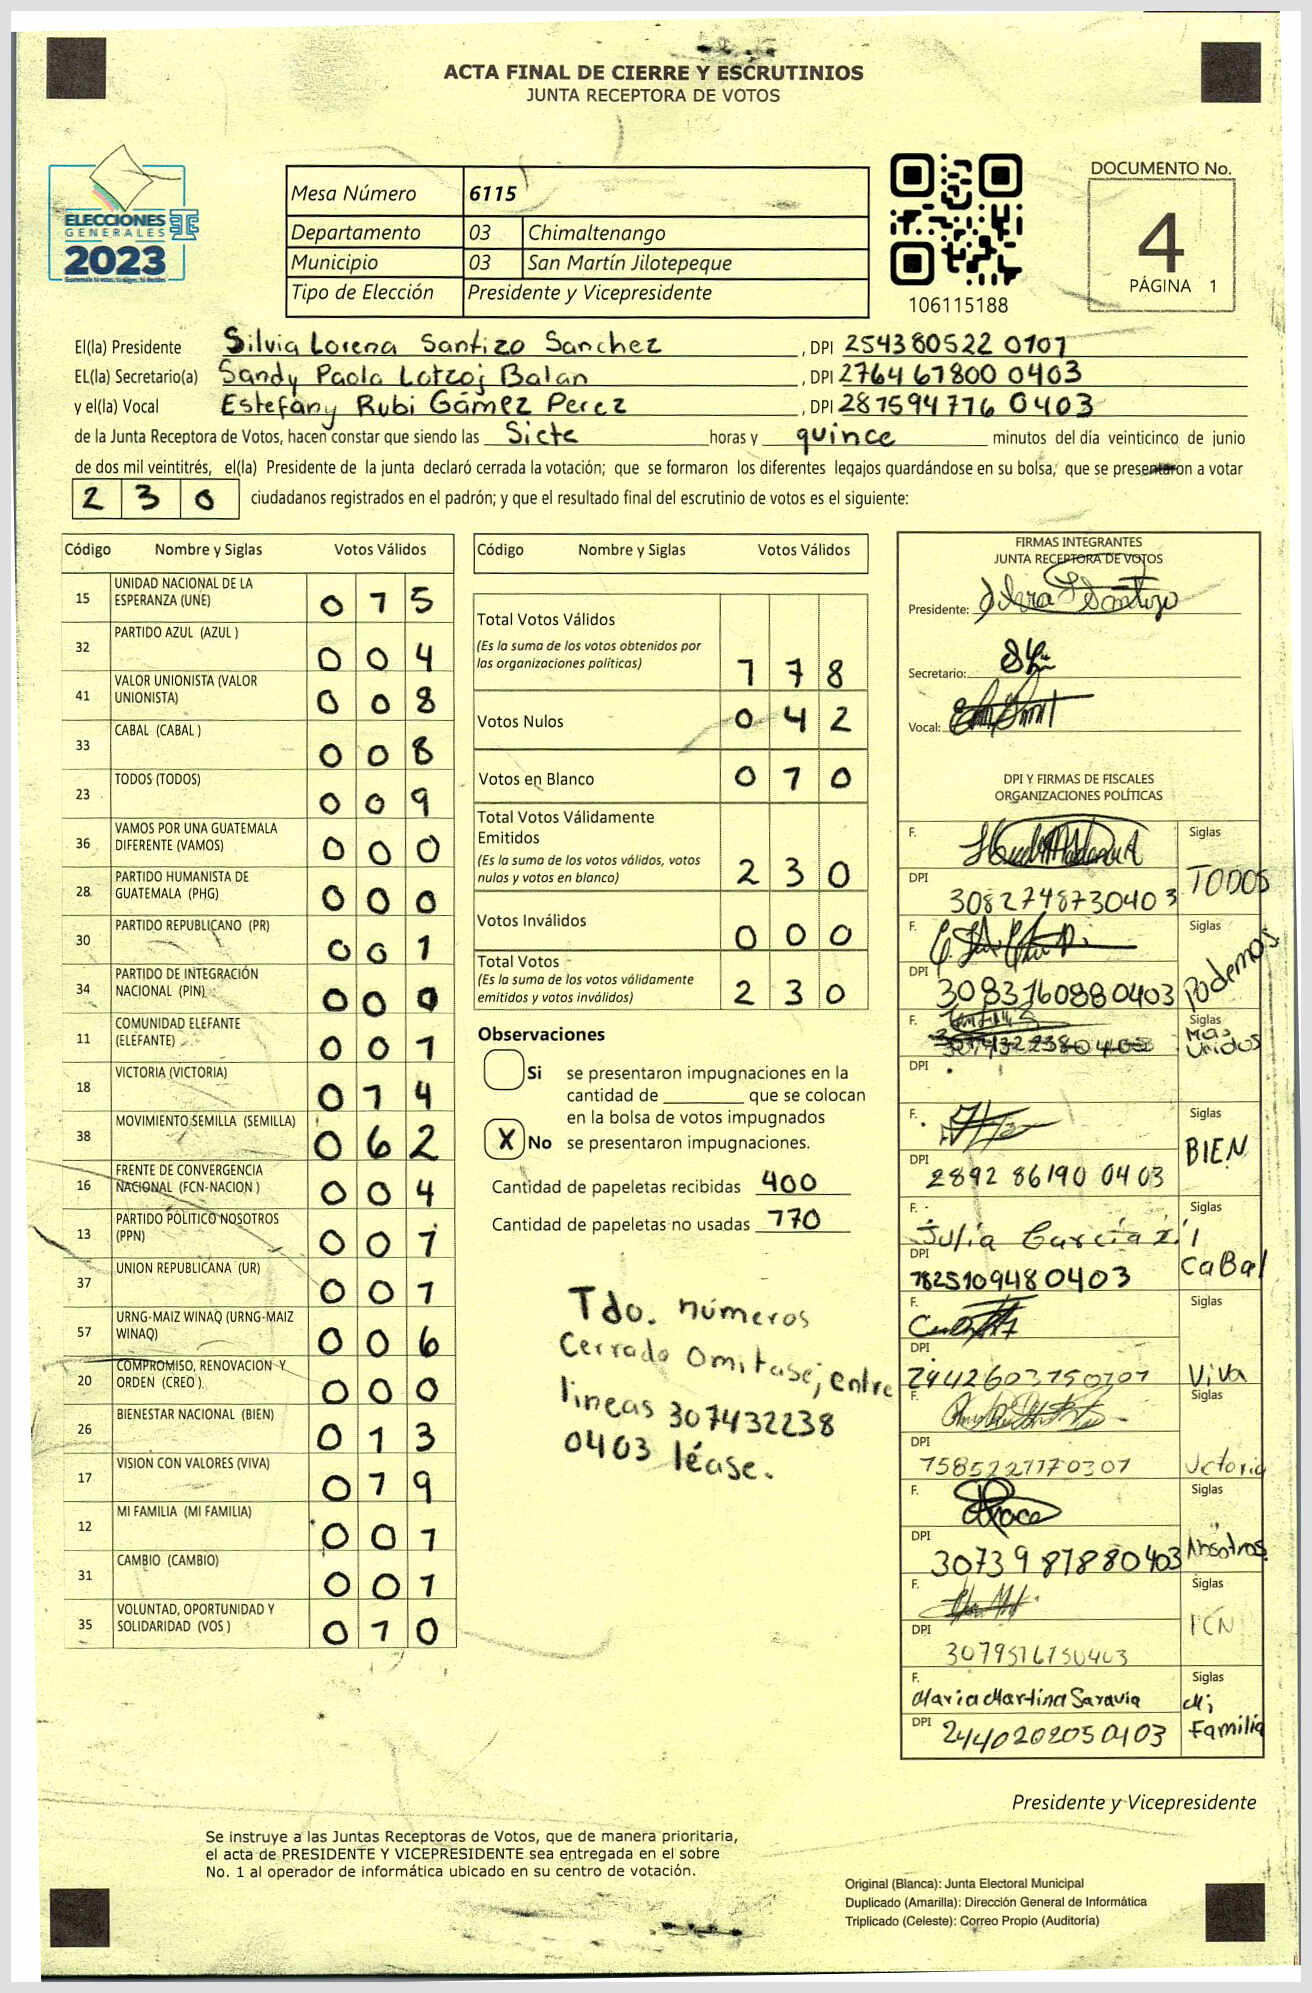 ACTA FINAL DE CIERRE Y ESCRUTINIOS
JUNTA RECEPTORA DE VOTOS
ELECCIONES
GENERALES
2023
Mesa Número 6115
Departamento 03 Chimaltenango
Municipio 03 San Martín Jilotepeque
Tipo de Elección Presidente y Vicepresidente
106115188
DOCUMENTO No.
4
PÁGINA 1
El(la) Presidente Silvia Lorena Santizo Sanchez, DPI 254380522 0101
EL(la) Secretario(a) Sandy Paola Lotzoj Balan, DPI 2764 67800 0403
y el(la) Vocal Estefany Rubi Gámez Perez, DPI 287594776 0403
de la Junta Receptora de Votos, hacen constar que siendo las Siete horas y quince minutos del día veinticinco de junio
de dos mil veintitrés, el(la) Presidente de la junta declaró cerrada la votación; que se formaron los diferentes legajos guardándose en su bolsa, que se presentaron a votar
230 ciudadanos registrados en el padrón; y que el resultado final del escrutinio de votos es el siguiente:
Código Nombre y Siglas Votos Válidos
15 UNIDAD NACIONAL DE LA ESPERANZA (UNE) 015
32 PARTIDO AZUL (AZUL ) 004
41 VALOR UNIONISTA (VALOR UNIONISTA) 008
33 CABAL (CABAL ) 008
23 TODOS (TODOS) 009
36 VAMOS POR UNA GUATEMALA DIFERENTE (VAMOS) 000
28 PARTIDO HUMANISTA DE GUATEMALA (PHG) 000
30 PARTIDO REPUBLICANO (PR) 001
34 PARTIDO DE INTEGRACIÓN NACIONAL (PIN) 000
11 COMUNIDAD ELEFANTE (ELEFANTE) 001
18 VICTORIA (VICTORIA) 014
38 MOVIMIENTO SEMILLA (SEMILLA) 062
16 FRENTE DE CONVERGENCIA NACIONAL (FCN-NACION ) 004
13 PARTIDO POLITICO NOSOTROS (PPN) 001
37 UNION REPUBLICANA (UR) 001
57 URNG-MAIZ WINAQ (URNG-MAIZ WINAQ) 006
20 COMPROMISO, RENOVACION Y ORDEN (CREO ) 000
26 BIENESTAR NACIONAL (BIEN) 013
17 VISION CON VALORES (VIVA) 019
12 MI FAMILIA (MI FAMILIA) 001
31 CAMBIO (CAMBIO) 001
35 VOLUNTAD, OPORTUNIDAD Y SOLIDARIDAD (VOS ) 010
Código Nombre y Siglas Votos Válidos
Total Votos Válidos 178
(Es la suma de los votos obtenidos por
las organizaciones políticas)
Votos Nulos 042
Votos en Blanco 010
Total Votos Válidamente
Emitidos 230
(Es la suma de los votos válidos, votos
nulos y votos en blanco)
Votos Inválidos 000
Total Votos 230
(Es la suma de los votos válidamente
emitidos y votos inválidos)
Observaciones
Si se presentaron impugnaciones en la
cantidad de ________ que se colocan
en la bolsa de votos impugnados
X No se presentaron impugnaciones.
Cantidad de papeletas recibidas 400
Cantidad de papeletas no usadas 170
Tdo. números
Cerrado Omitase; entre
lineas 307432238
0403 léase.
FIRMAS INTEGRANTES
JUNTA RECEPTORA DE VOTOS
Presidente:
Secretario:
Vocal:
DPI Y FIRMAS DE FISCALES
ORGANIZACIONES POLÍTICAS
F. Siglas
DPI 3082748730403 TODOS
F. Siglas
DPI 3083160880403 Podemos
F. Siglas
Mas
Unidos
DPI
F. Siglas
DPI 2892 86190 0403 BIEN
F. Julia García Siglas
DPI 1825109480403 CaBal
F. Siglas
DPI 2442603750101 Viva
F. Siglas
DPI 1585221170301 Victoria
F. Siglas
DPI 3073987880403 Nosotros
F. Siglas
DPI
F. Maria Martina Saravia Siglas
DPI 2440202050403 Mi
Familia
Presidente y Vicepresidente
Se instruye a las Juntas Receptoras de Votos, que de manera prioritaria,
el acta de PRESIDENTE Y VICEPRESIDENTE sea entregada en el sobre
No. 1 al operador de informática ubicado en su centro de votación.
Original (Blanca): Junta Electoral Municipal
Duplicado (Amarilla): Dirección General de Informática
Triplicado (Celeste): Correo Propio (Auditoría)